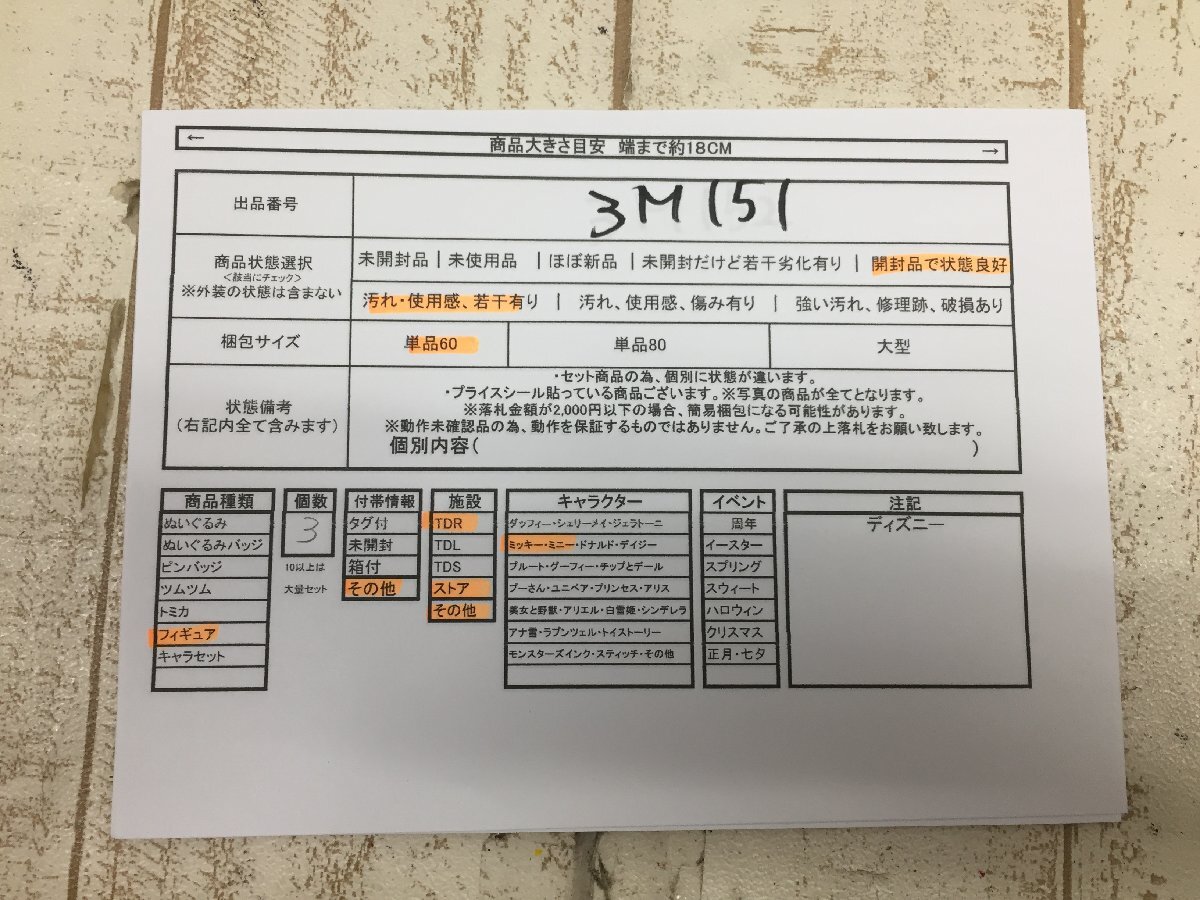 ← 商品大きさ目安 端まで約18CM →
出品番号 3M151
商品状態選択
<該当にチェック>
※外装の状態は含まない
未開封品 | 未使用品 | ほぼ新品 | 未開封だけど若干劣化有り | 開封品で状態良好
汚れ・使用感、若干有り | 汚れ、使用感、傷み有り | 強い汚れ、修理跡、破損あり
梱包サイズ 単品60 単品80 大型
状態備考
(右記内全て含みます)
・セット商品の為、個別に状態が違います。
・プライスシール貼っている商品ございます。※写真の商品が全てとなります。
※落札金額が2,000円以下の場合、簡易梱包になる可能性があります。
※動作未確認品の為、動作を保証するものではありません。ご了承の上落札をお願い致します。
個別内容( )
商品種類
ぬいぐるみ
ぬいぐるみバッジ
ピンバッジ
ツムツム
トミカ
フィギュア
キャラセット
個数
3
10以上は
大量セット
付帯情報
タグ付
未開封
箱付
その他
施設
TDR
TDL
TDS
ストア
その他
キャラクター
ダッフィー・シェリーメイ・ジェラトーニ
ミッキー・ミニー・ドナルド・デイジー
プルート・グーフィー・チップとデール
プーさん・ユニベア・プリンセス・アリス
美女と野獣・アリエル・白雪姫・シンデレラ
アナ雪・ラプンツェル・トイストーリー
モンスターズインク・スティッチ・その他
イベント
周年
イースター
スプリング
スウィート
ハロウィン
クリスマス
正月・七夕
注記
ディズニー